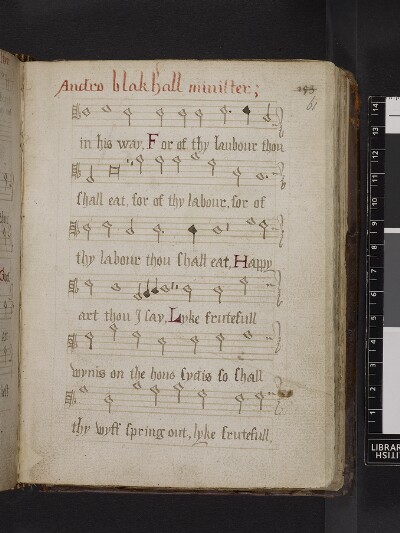 Andro blakhall minister;
153
61
in his way, For of thy laubour thou
shall eat, for of thy labour, for of
thy labour thou shall eat, Happy
art thou I say, Lyke frutefull
wynis on the hous sydis so shall
thy wyff spring out, lyke frutefull,
14
13
12
11
10
9
8
7
6
5
4
3
2
1
LIBRAR
BRITISH